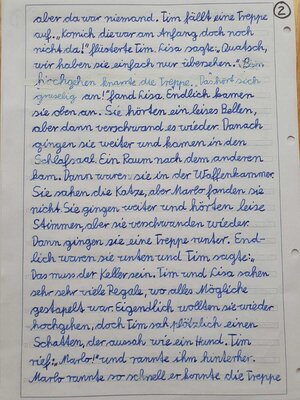 2
aber da war niemand. Tim fällt eine Treppe
auf. „Komich die war am Anfang doch noch
nicht da!" flüsterte Tim. Lisa sagte: „Quatsch,
wir haben sie einfach nur übersehen." Beim
hirchgehen knarrte die Treppe. „Das hört sich
gruselig an!" fand Lisa. Endlich kamen
sie oben an. Sie hörten ein leises Bellen,
aber dann verschwand es wieder. Danach
gingen sie weiter und kamen in den
Schlafsaal. Ein Raum nach dem anderen
kam. Dann waren sie in der Waffenkammer.
Sie sahen die Katze, aber Marlo fanden sie
nicht. Sie gingen weiter und hörten leise
Stimmen, aber sie verschwanden wieder.
Dann gingen sie eine Treppe runter. End-
lich waren sie unten und Tim sagte: „
Das muss der Keller sein. Tim und Lisa sahen
sehr sehr viele Regale, wo alles Mögliche
gestapelt war. Eigendlich wollten sie wieder
hochgehen, doch Tim sah plötzlich einen
Schatten, der aussah wie ein Hund. Tim
rief: „Marlo!" und rannte ihm hinterher.
Marlo rannte so schnell er konnte die Treppe